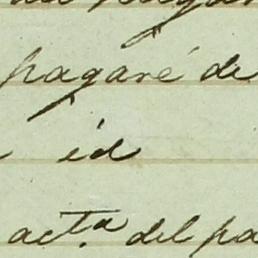 pagaré de
id
act.ª del pa